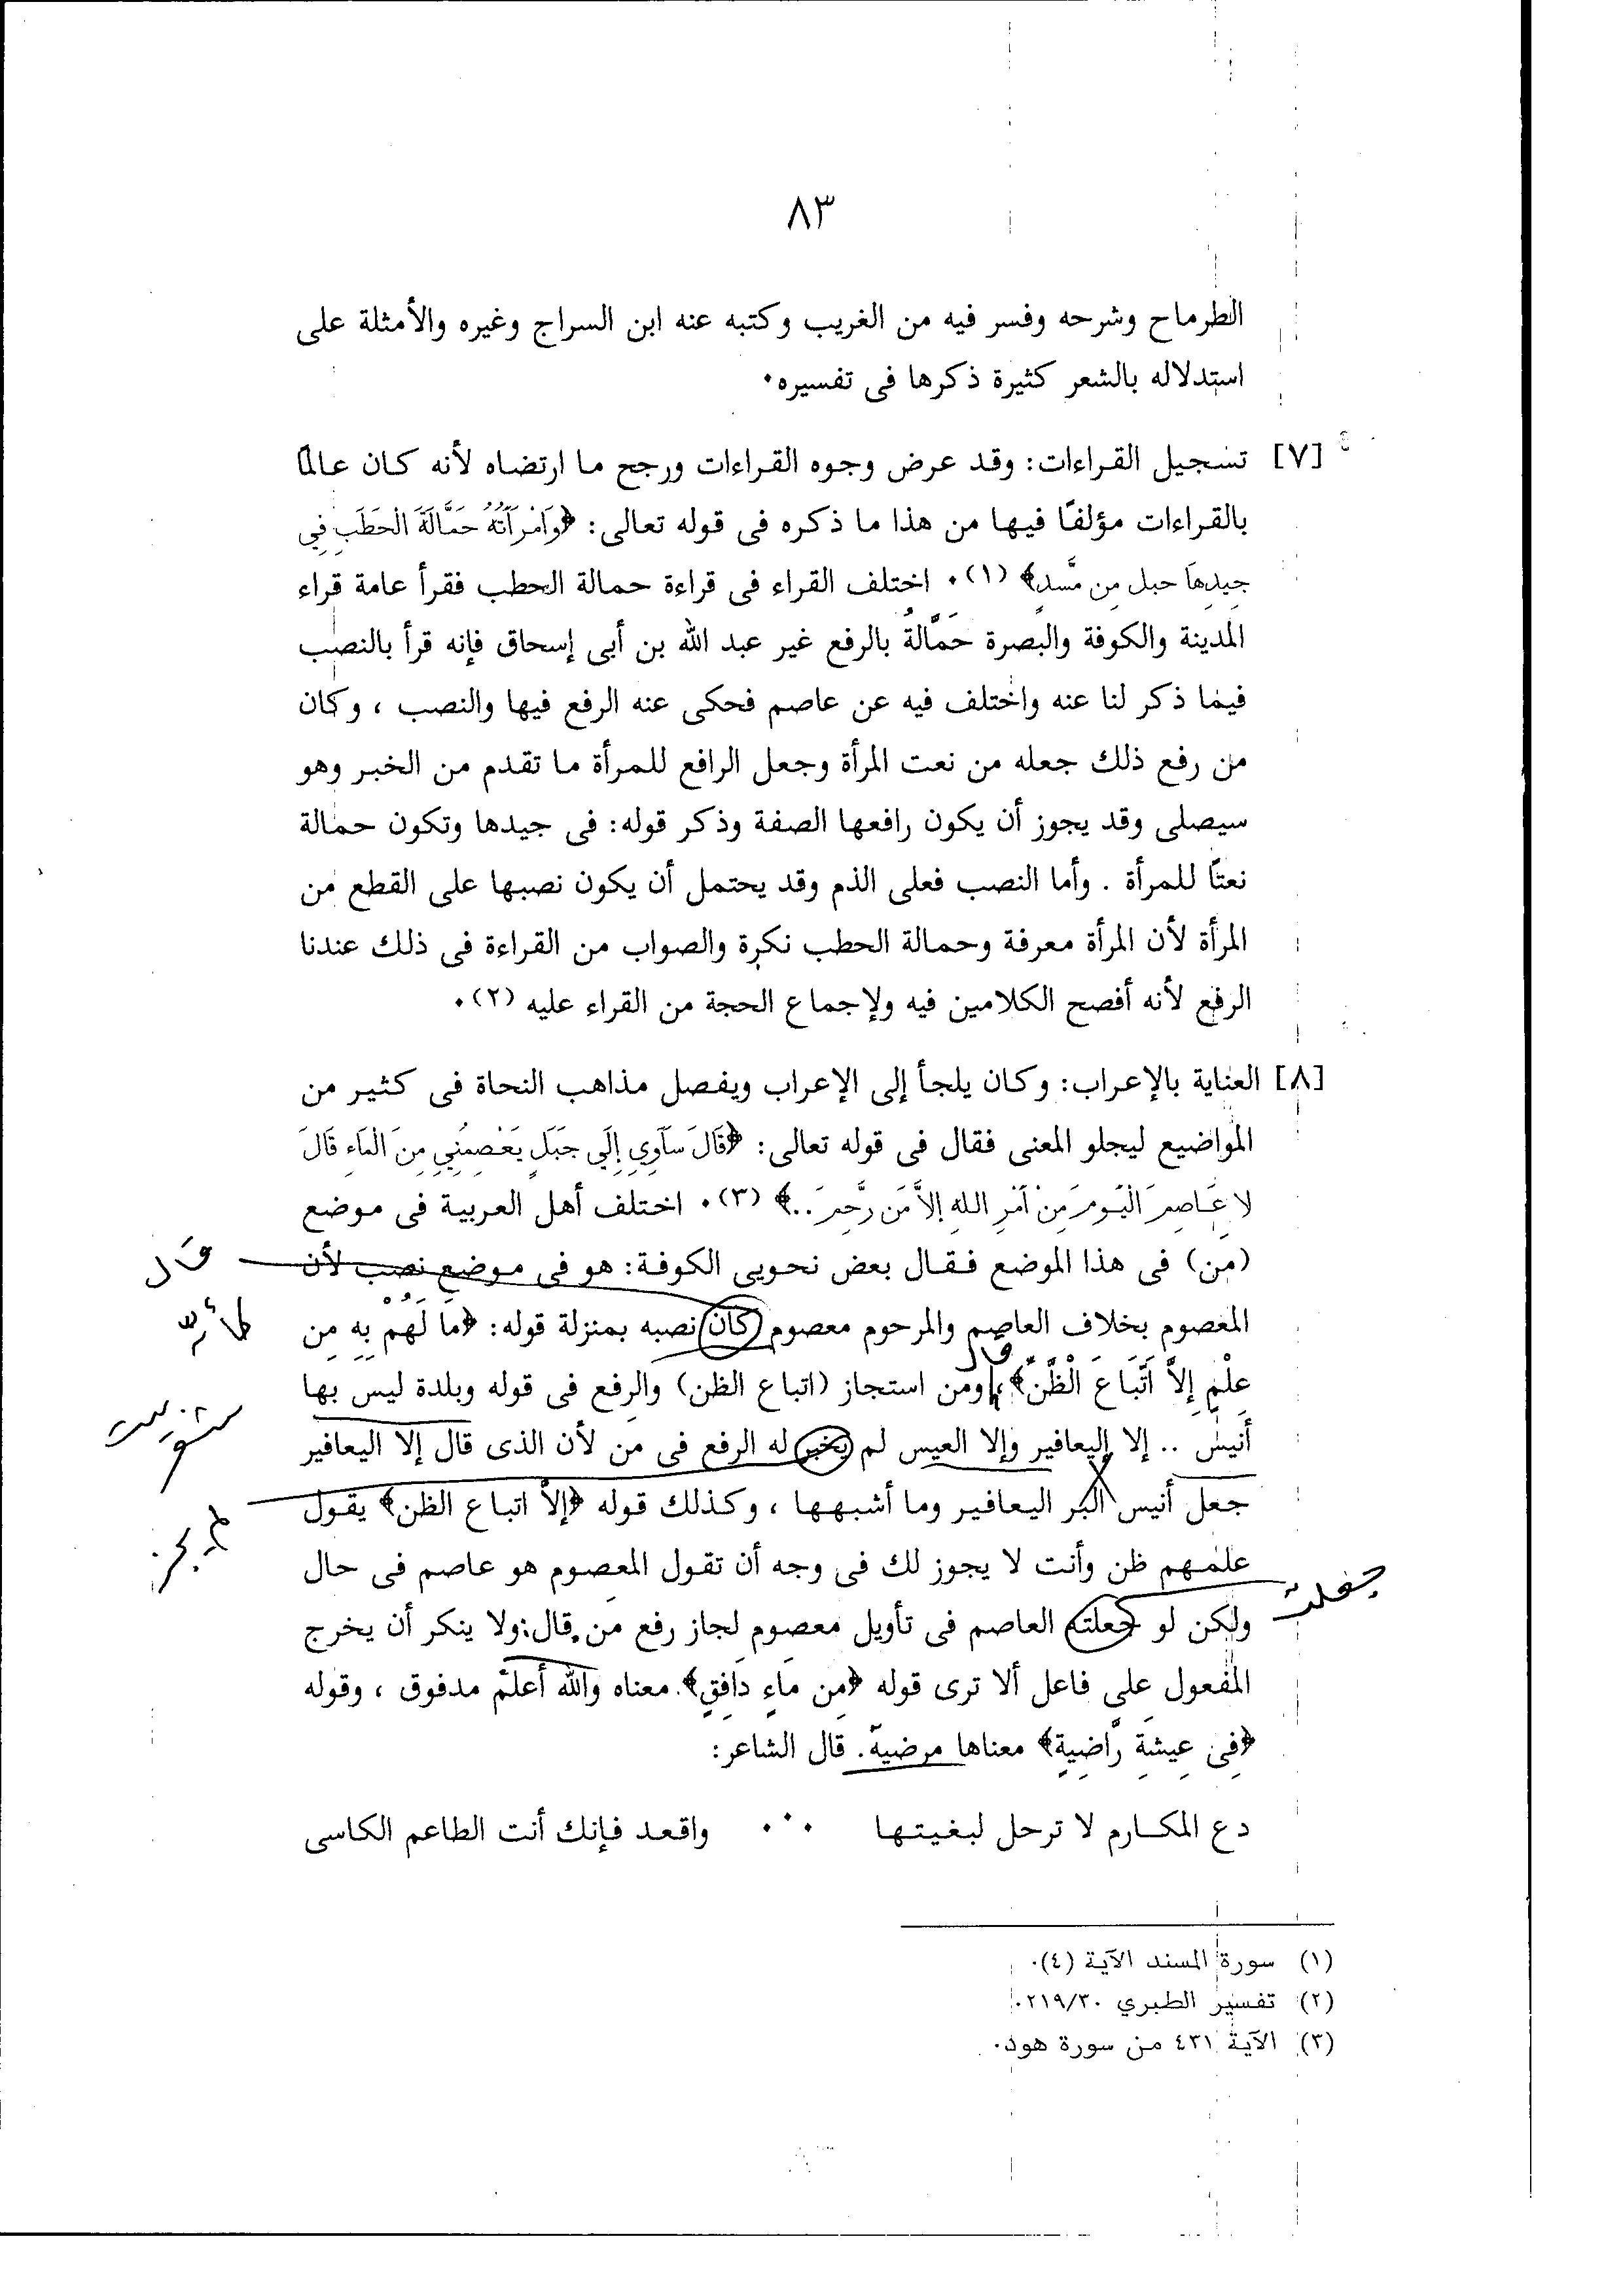 ٨٣
الطرماح وشرحه وفسر فيه من الغريب وكتبه عنه ابن السراج وغيره والأمثلة على
استدلاله بالشعر كثيرة ذكرها فى تفسيره.
[٧] تسجيل القراءات: وقد عرض وجوه القراءات ورجح ما ارتضاه لأنه كان عالمًا
بالقراءات مؤلفًا فيها من هذا ما ذكره فى قوله تعالى: ﴿وَامْرَأَتُهُ حَمَّالَةَ الْحَطَبِ فِي
جِيدِهَا حبل مِن مَّسدٍ﴾ (١). اختلف القراء فى قراءة حمالة الحطب فقرأ عامة قراء
المدينة والكوفة والبصرة حَمَّالةُ بالرفع غير عبد الله بن أبى إسحاق فإنه قرأ بالنصب
فيما ذكر لنا عنه واختلف فيه عن عاصم فحكى عنه الرفع فيها والنصب ، وكان
من رفع ذلك جعله من نعت المرأة وجعل الرافع للمرأة ما تقدم من الخبر وهو
سيصلى وقد يجوز أن يكون رافعها الصفة وذكر قوله: فى جيدها وتكون حمالة
نعتًا للمرأة . وأما النصب فعلى الذم وقد يحتمل أن يكون نصبها على القطع من
المرأة لأن المرأة معرفة وحمالة الحطب نكرة والصواب من القراءة فى ذلك عندنا
الرفع لأنه أفصح الكلامين فيه ولإجماع الحجة من القراء عليه (٢).
[٨] العناية بالإعراب: وكان يلجأ إلى الإعراب ويفصل مذاهب النحاة فى كثير من
المواضيع ليجلو المعنى فقال فى قوله تعالى: ﴿قَالَ سَآوِي إِلَى جَبَلٍ يَعْصِمُنِي مِنَ الْمَاءِ قَالَ
لا عَاصِمَ الْيَوْمَ مِنْ أَمْرِ اللهِ إِلاَّ مَن رَّحِمَ..﴾ (٣). اختلف أهل العربية فى موضع
(من) فى هذا الموضع فقال بعض نحويى الكوفة: هو فى موضع نصب لأن
قال
المعصوم بخلاف العاصم والمرحوم معصوم كان نصبه بمنزلة قوله: ﴿مَا لَهُمْ بِهِ مِن
كأنّ
قال
عِلْمٍ إِلاَّ اتَّبَاعَ الْظَّنِّ﴾، ومن استجاز (اتباع الظن) والرفع فى قوله وبلدة ليس بها
أنيس .. إلا اليعافير وإلا العيس لم يخبر له الرفع فى من لأن الذى قال إلا اليعافير
جعل أنيس البر اليعافير وما أشبهها ، وكذلك قوله ﴿إلاَّ اتباع الظن﴾ يقول
لم يجز
علمهم ظن وأنت لا يجوز لك فى وجه أن تقول المعصوم هو عاصم فى حال
ولكن لو جعلته العاصم فى تأويل معصوم لجاز رفع من. قال: ولا ينكر أن يخرج
جعلت
المفعول على فاعل ألا ترى قوله ﴿مِن مَاءٍ دَافِقٍ﴾. معناه والله أعلم مدفوق ، وقوله
﴿فِى عِيشَةٍ رَّاضِيةٍ﴾ معناها مرضية. قال الشاعر:
دع المكارم لا ترحل لبغيتها ∴ واقعد فإنك أنت الطاعم الكاسى
(١) سورة المسند الآية (٤).
(٢) تفسير الطبري ٢١٩/٣٠.
(٣) الآية ٤٣١ من سورة هود.